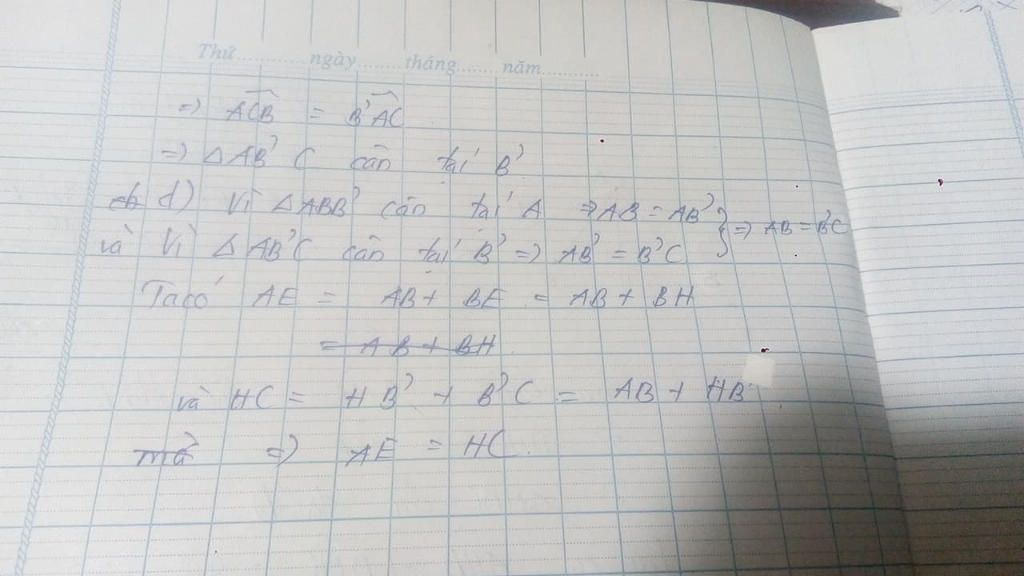 Thứ............ngày........tháng........năm............
=> ACB = B'AC
=> △AB'C cân tại B'
d) Vì △ABB' cân tại A => AB = AB' } => AB = B'C
và Vì △AB'C cân tại B' => AB' = B'C
Ta có AE = AB + BE = AB + BH
= AB + BH
và HC = HB' + B'C = AB + HB
mà => AE = HC.